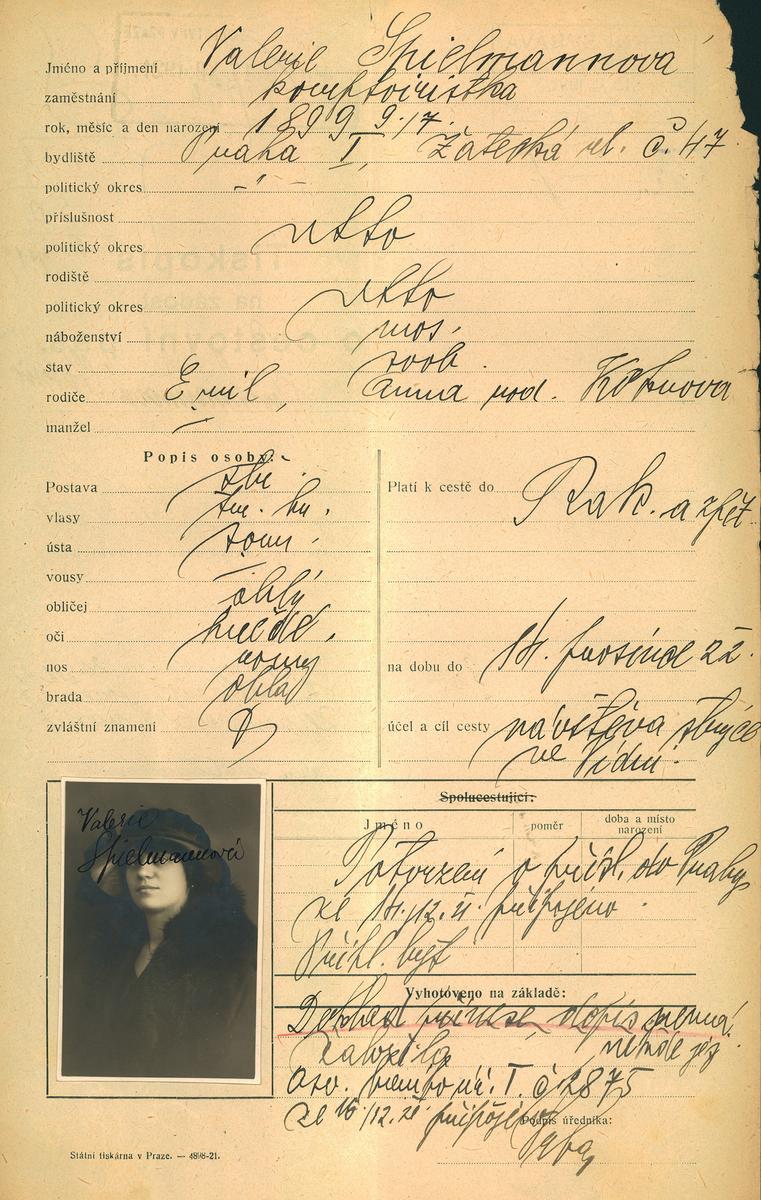 Jméno a příjmení Valerie Spielmannová
zaměstnání komptoiristka
rok, měsíc a den narození 1899 9./7.
bydliště Praha I, Žatecká ul. č. 47
politický okres -"-
příslušnost
politický okres detto
rodiště
politický okres detto
náboženství mos.
stav svob.
rodiče Emil, Anna rod. Kohnová
manžel —
Popis osoby:
Postava stř.
vlasy tm. hn.
ústa soum.
vousy —
obličej oblý
oči hnědé,
nos rovný
brada oblá
zvláštní znamení
Platí k cestě do Rak. a zpět
na dobu do 14. prosince 22.
účel a cíl cesty návštěva strýce
ve Vídni.
Valerie
Spielmannová
Spolucestující:
Jméno poměr doba a místo
narození
Potvrzení o přísl. do Prahy
ze 14./12. 21. připojeno.
Přihl. byt
Vyhotoveno na základě:
dopis
Osv. I. č. 2875
ze 16/12. 21 připojeno
Podpis úředníka:
Státní tiskárna v Praze. — 4898-21.